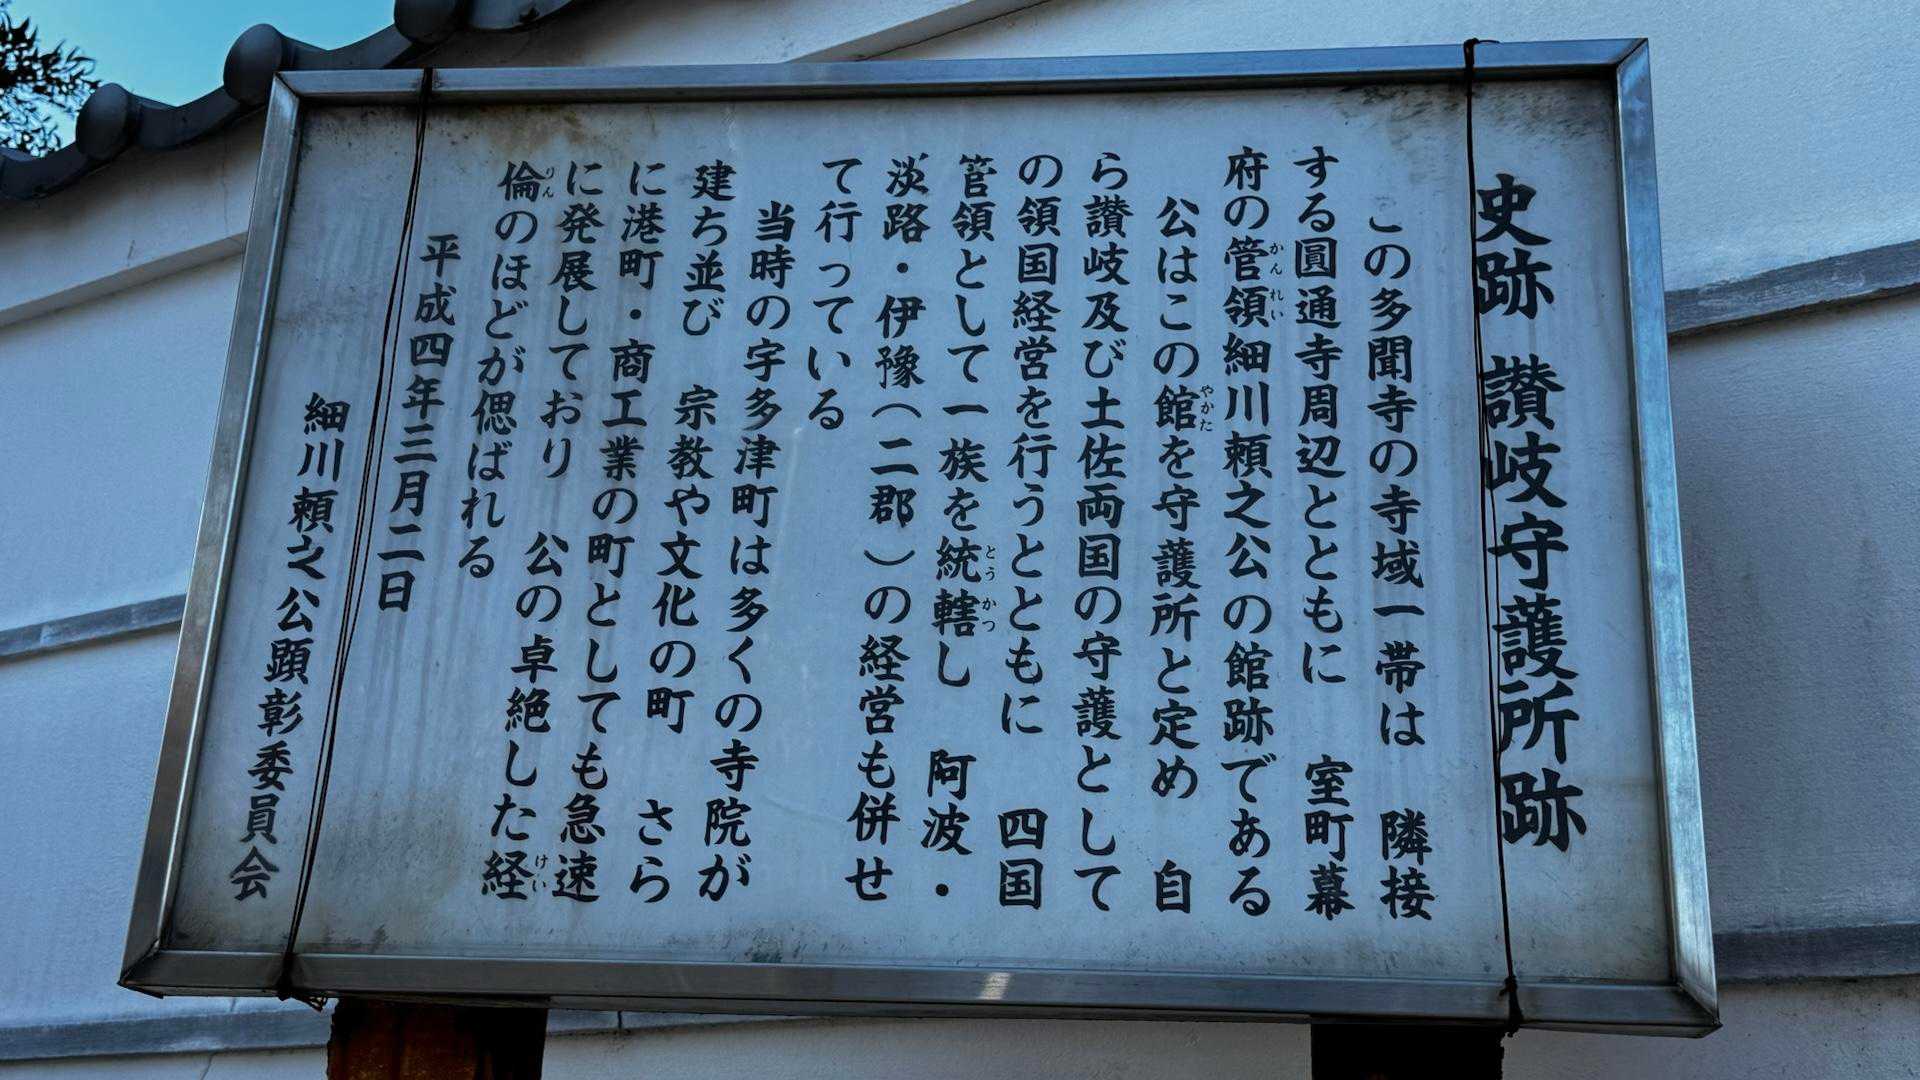 史跡 讃岐守護所跡
この多聞寺の寺域一帯は 隣接
する圓通寺周辺とともに 室町幕
府の管領細川頼之公の館跡である
公はこの館を守護所と定め 自
ら讃岐及び土佐両国の守護として
の領国経営を行うとともに 四国
管領として一族を統轄し 阿波・
淡路・伊豫(二郡)の経営も併せ
て行っている
当時の宇多津町は多くの寺院が
建ち並び 宗教や文化の町 さら
に港町・商工業の町としても急速
に発展しており 公の卓絶した経
倫のほどが偲ばれる
平成四年三月二日
細川頼之公顕彰委員会